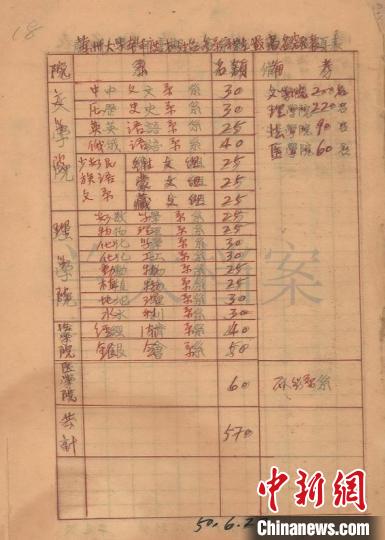 18
蘭州大學
院 系 名額 備考
文學院 中文系 30 文學院200名
歷史系 30 理學院220名
英語系 25 法學院90名
俄語系 40 医學院60名
少數民族語文系 維文組 25
蒙文組 25
藏文組 25
理學院 數學系 25
物理系 25
化學系 30
化工系 30
動物系 25
植物系 25
地理系 30
水利系 30
法學院 經濟系 40
銀會系 50
医學院 60 不分系
共計 570
50.6.2
中新网
Chinanews.com